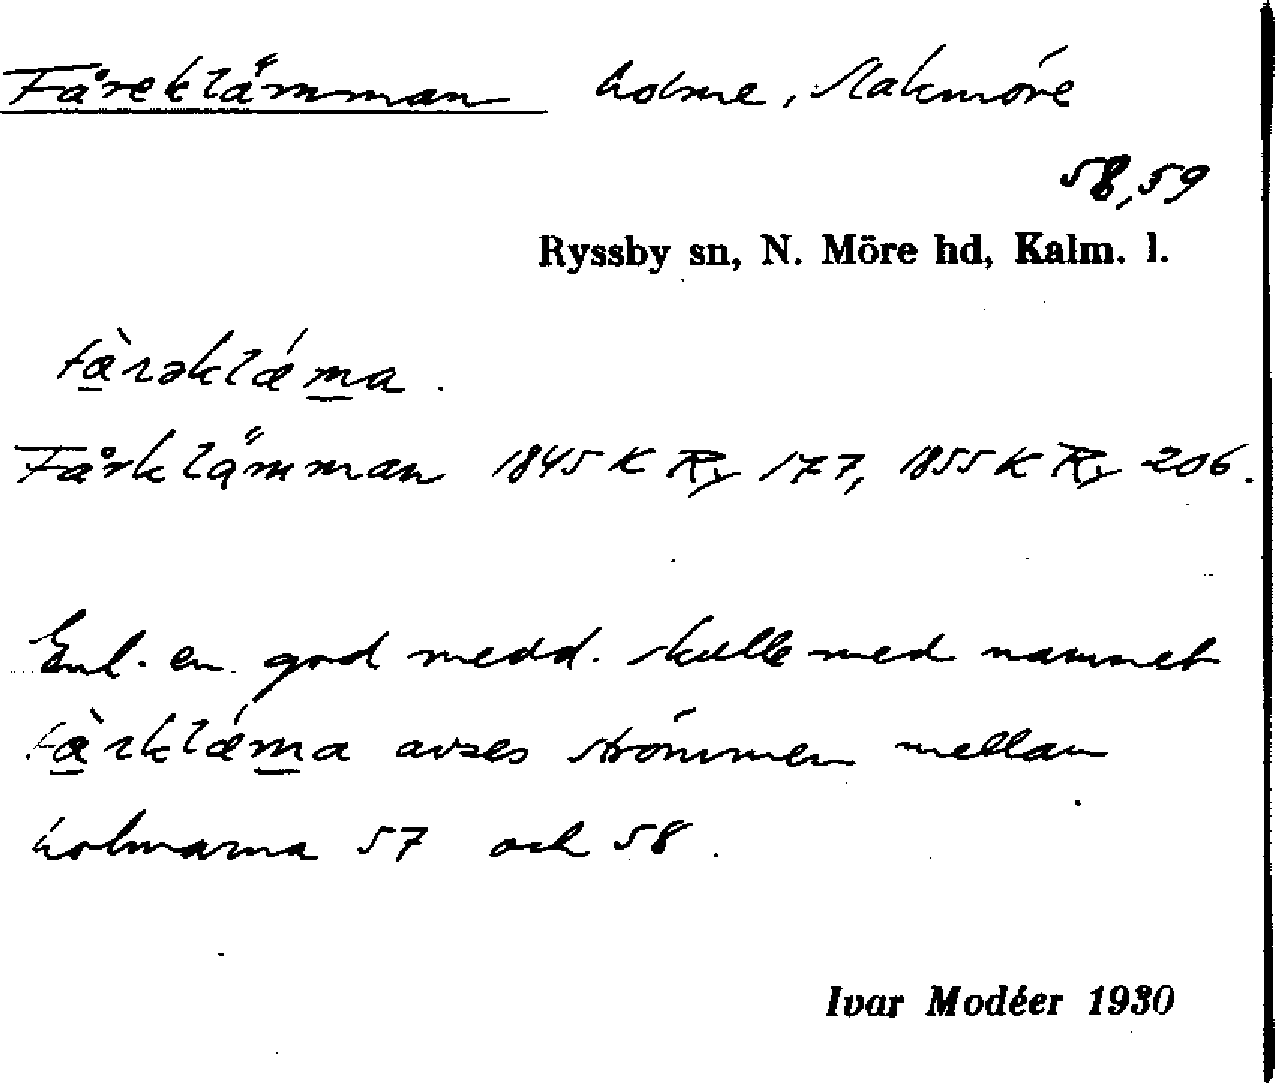 Fåreklämman holme, Slakmöre
58, 59
Ryssby sn, N. Möre hd, Kalm. l.
fàrəklǽma.
Fårklämman 1845 K Ry 177, 1855 K Ry 206.
Enl. en god medd. skulle med namnet
fàrklǽma avses strömmen mellan
holmarna 57 och 58.
Ivar Modéer 1930